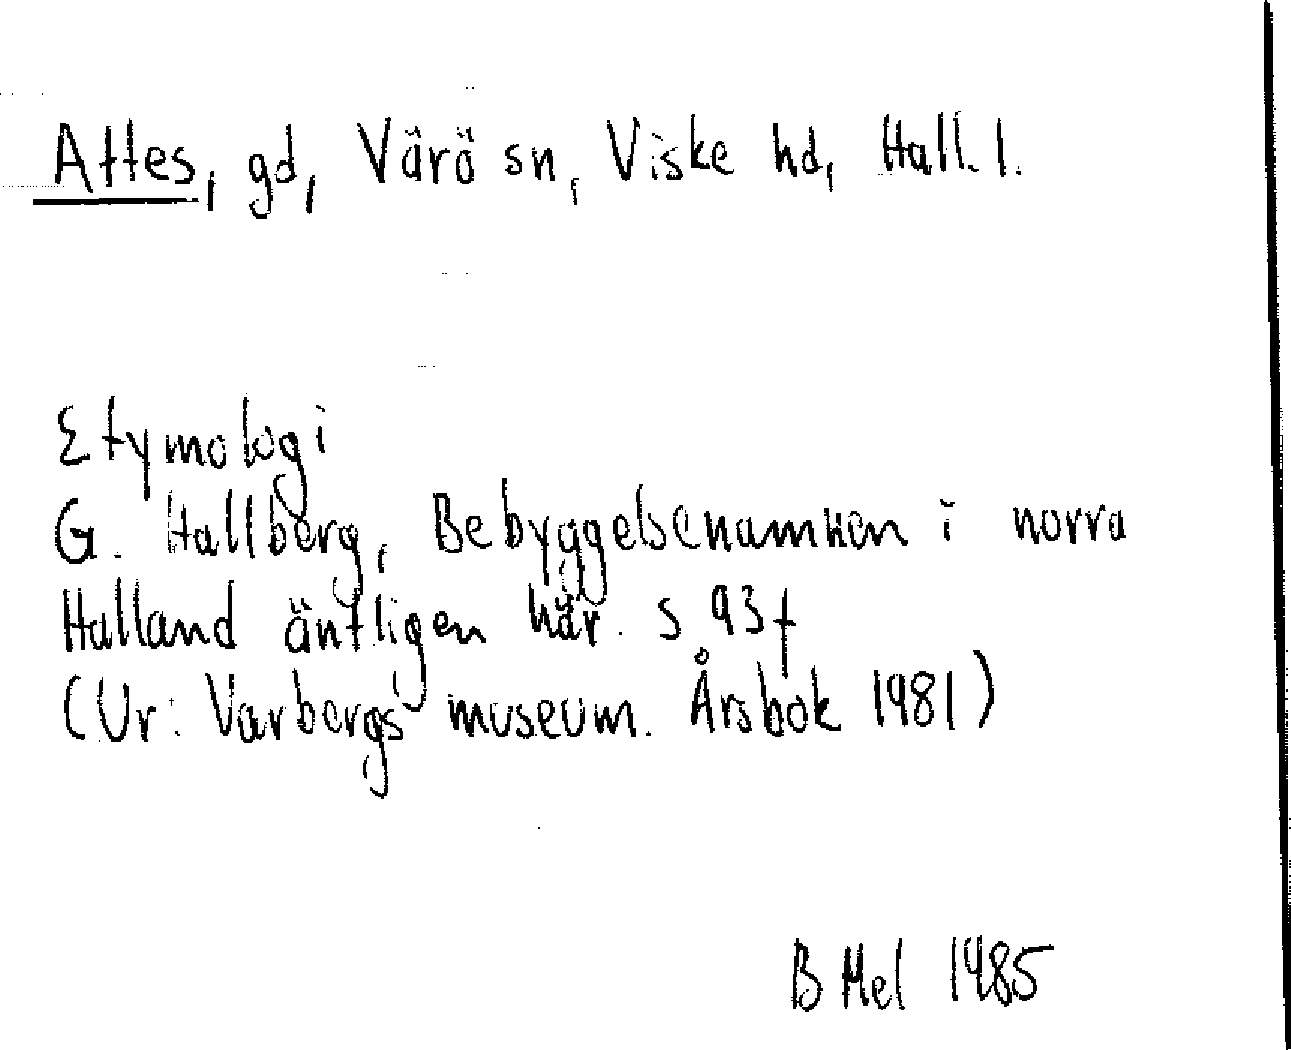 Attes, gd, Värö sn, Viske hd, Hall. l.
Etymologi
G. Hallberg, Bebyggelsenamnen i norra
Halland äntligen här. s 93f
(Ur: Varbergs museum. Årsbok 1981)
B Mel 1985